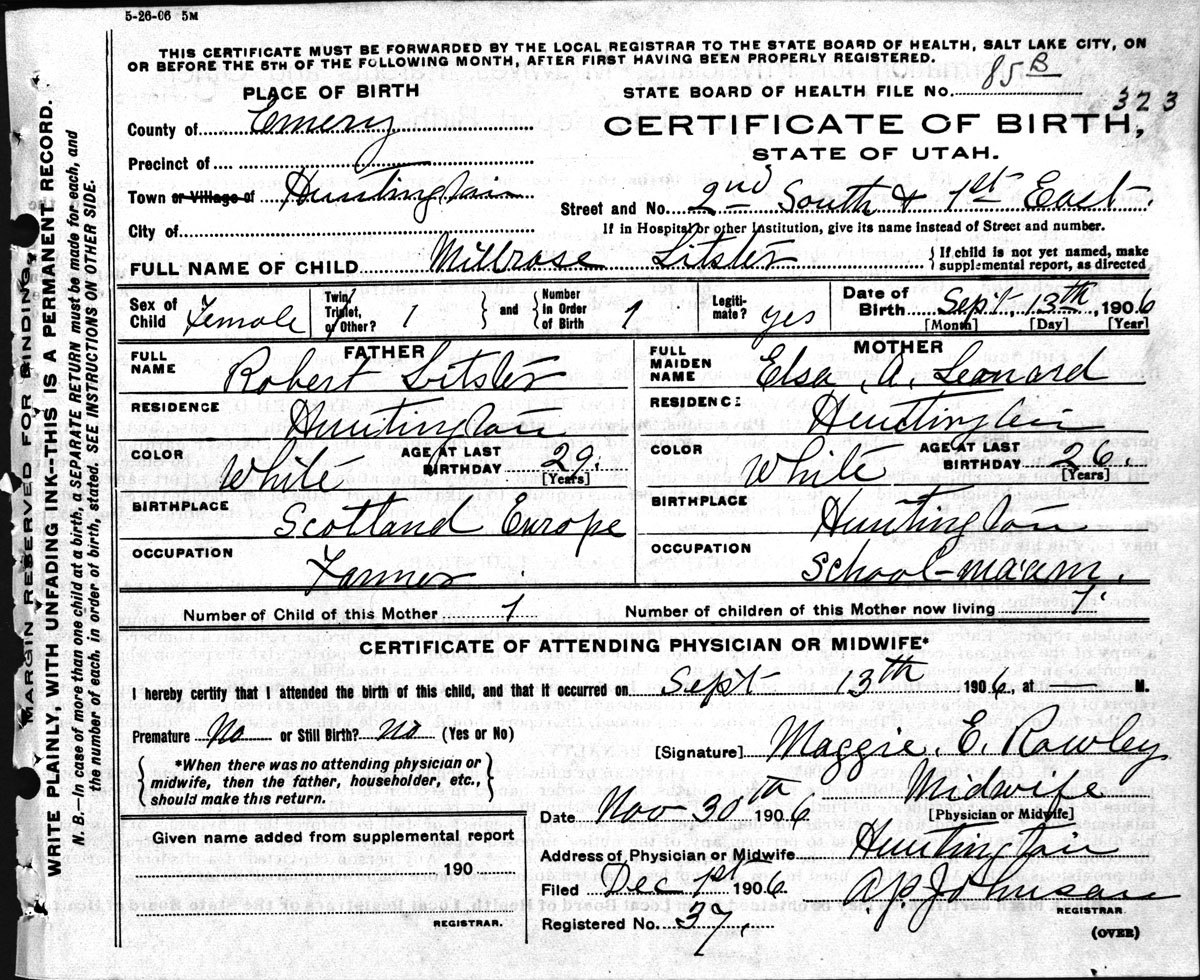 5-26-06 5M
THIS CERTIFICATE MUST BE FORWARDED BY THE LOCAL REGISTRAR TO THE STATE BOARD OF HEALTH, SALT LAKE CITY, ON
OR BEFORE THE 5TH OF THE FOLLOWING MONTH, AFTER FIRST HAVING BEEN PROPERLY REGISTERED.
PLACE OF BIRTH
STATE BOARD OF HEALTH FILE NO. 85B
323
County of Emery
CERTIFICATE OF BIRTH,
STATE OF UTAH.
Precinct of
Town or Village of Huntington
Street and No. 2nd South & 1st East.
If in Hospital or other Institution, give its name instead of Street and number.
City of
FULL NAME OF CHILD Millrose Litster
If child is not yet named, make
supplemental report, as directed
Sex of Child Female
Twin, Triplet, or Other? 1
and
Number in Order of Birth 1
Legitimate? yes
Date of Birth Sept. 13th, 1906
[Month] [Day] [Year]
FATHER
FULL NAME Robert Litster
RESIDENCE Huntington
COLOR White
AGE AT LAST BIRTHDAY 29.
[Years]
BIRTHPLACE Scotland Europe
OCCUPATION Farmer.
MOTHER
FULL MAIDEN NAME Elsa. A. Leonard
RESIDENCE Huntington
COLOR White
AGE AT LAST BIRTHDAY 26.
[Years]
BIRTHPLACE Huntington
OCCUPATION School-maam.
Number of Child of this Mother 1
Number of children of this Mother now living 1.
CERTIFICATE OF ATTENDING PHYSICIAN OR MIDWIFE*
I hereby certify that I attended the birth of this child, and that it occurred on Sept 13th 1906, at — M.
Premature No or Still Birth? no (Yes or No)
[Signature] Maggie. E. Rowley
*When there was no attending physician or
midwife, then the father, householder, etc.,
should make this return.
Date Nov-30th 1906
Midwife
[Physician or Midwife]
Given name added from supplemental report
190
REGISTRAR.
Address of Physician or Midwife Huntington
Filed Dec 1st 1906
A.P. Johnson
REGISTRAR.
Registered No. 37.
(OVER)
MARGIN RESERVED FOR BINDING.
WRITE PLAINLY, WITH UNFADING INK--THIS IS A PERMANENT RECORD.
N. B.—In case of more than one child at a birth, a SEPARATE RETURN must be made for each, and
the number of each, in order of birth, stated. SEE INSTRUCTIONS ON OTHER SIDE.